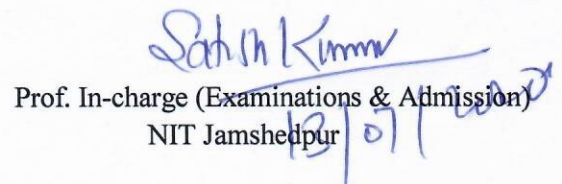 Satish Kumar
Prof. In-charge (Examinations & Admission)
NIT Jamshedpur
13/07/2020